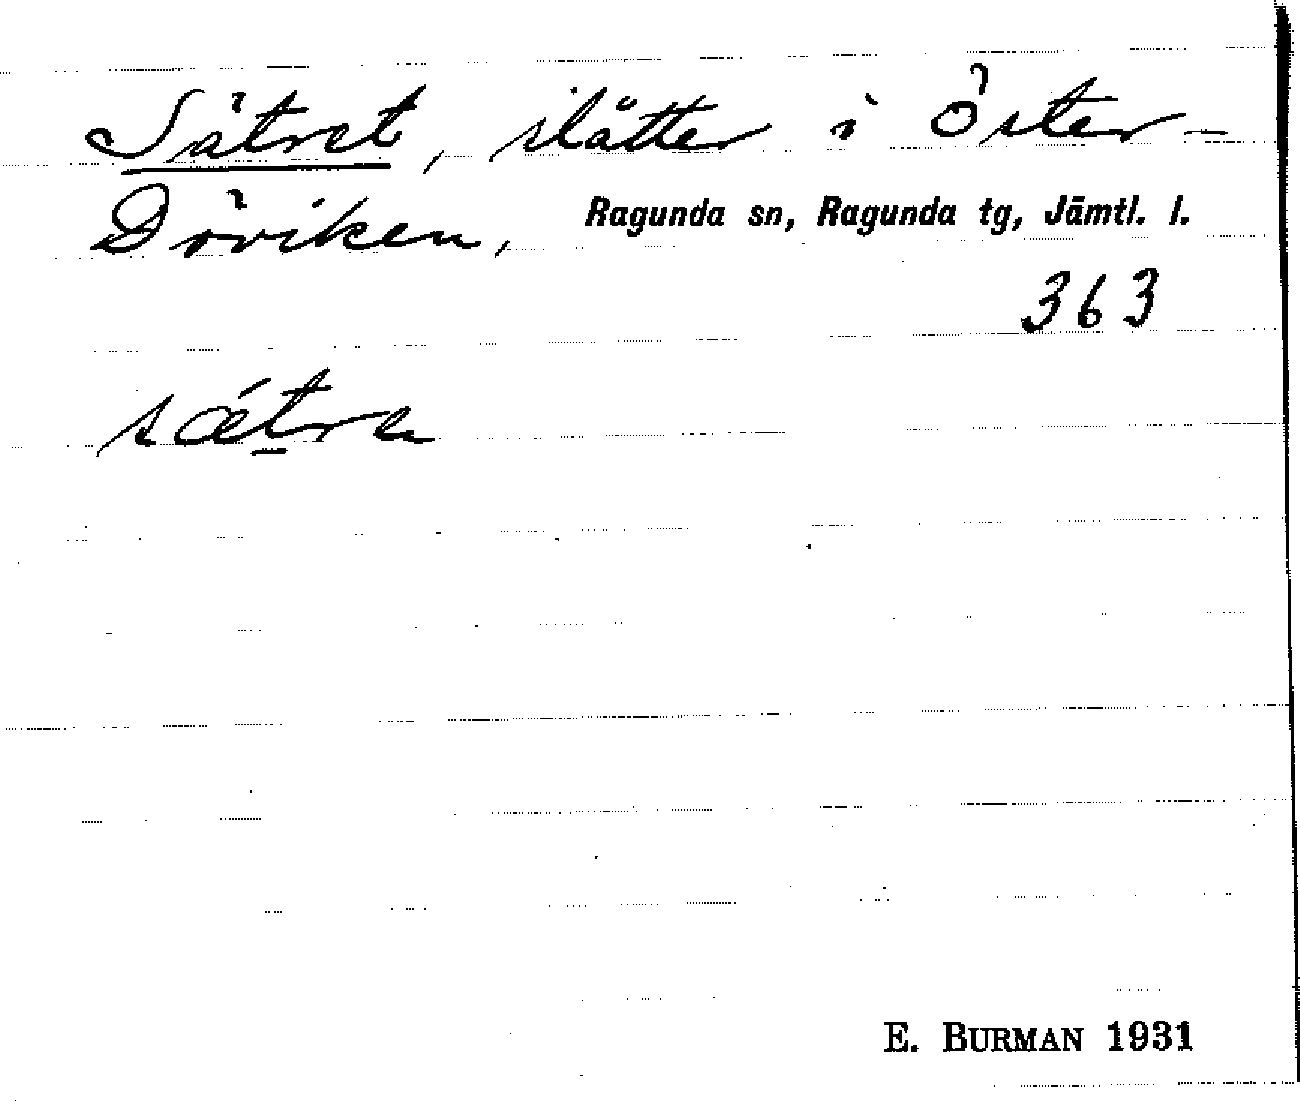 Sätret, slåtter i Öster-
Döviken, Ragunda sn, Ragunda tg, Jämtl. l.
363
sǽt̲ra
E. BURMAN 1931